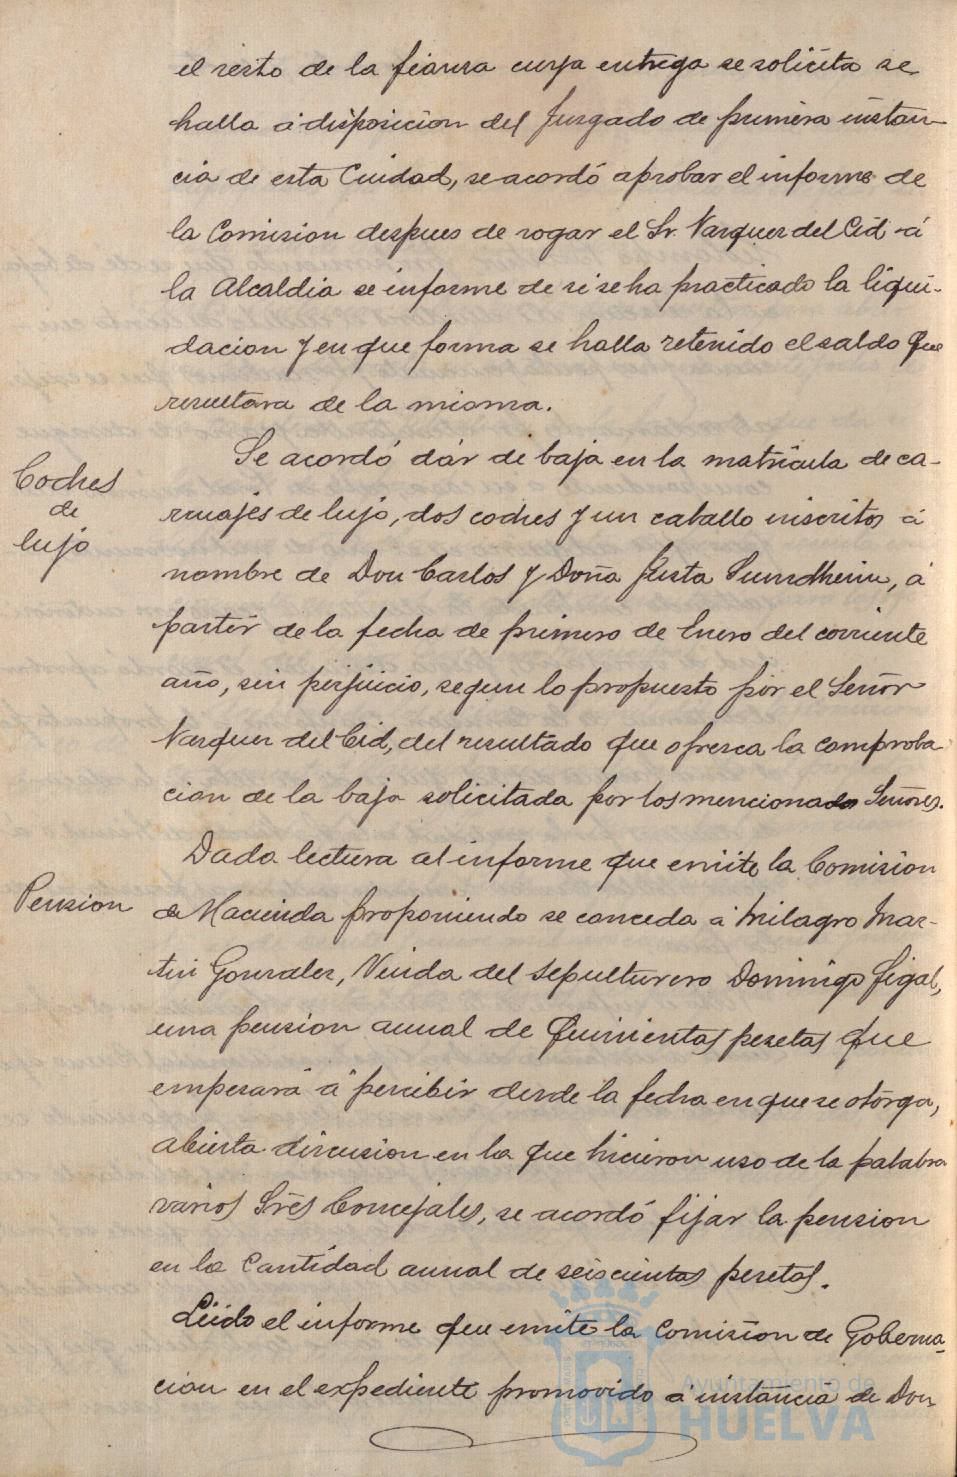 el resto de la fianza cuya entrega se solicita se
halla á disposicion del Juzgado de primera instan-
cia de esta Ciudad, se acordó aprobar el informe de
la Comision despues de rogar el Sr. Vazquez del Cid á
la Alcaldia se informe de si se ha practicado la liqui-
dacion y en que forma se halla retenido el saldo que
resultara de la misma.
Coches
de
lujo
Se acordó dár de baja en la matricula de ca-
rruajes de lujo, dos coches y un caballo inscritos á
nombre de Don Carlos y Doña Justa Sundheim, á
partir de la fecha de primero de Enero del corriente
año, sin perjuicio, segun lo propuesto por el Señor
Vazquez del Cid, del resultado que ofrezca la comproba
cion de la baja solicitada por los mencionados Señores.
Pension
Dada lectura al informe que emite la Comision
de Hacienda proponiendo se conceda á Milagro Mar-
tin Gonzalez, Viuda del sepulturero Domingo Figal,
una pension anual de Quinientas pesetas que
empezará á percibir desde la fecha en que se otorga,
abierta discusion en la que hicieron uso de la palabra
varios Sres Concejales, se acordó fijar la pension
en la Cantidad anual de seiscientas pesetas.
Leido el informe que emite la Comision de Goberna-
cion en el expediente promovido á instancia de Don
Ayuntamiento de
HUELVA